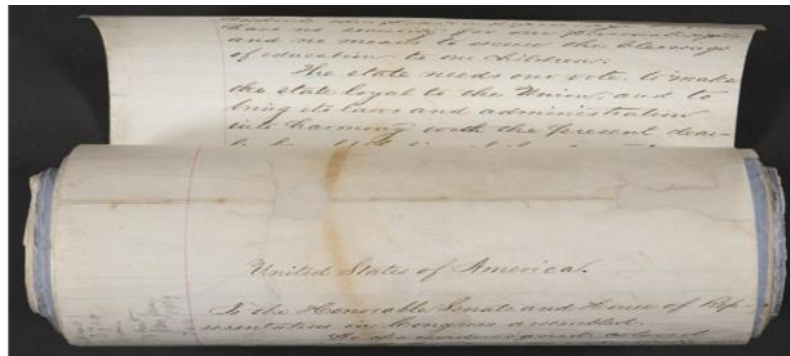 have no security for our
and no means to secure the blessings
of education to our children.
The state needs our vote, to make
the state loyal to the Union, and to
bring its laws and administration
into harmony with the present dear
United States of America.
To the Honorable Senate and House of Rep-
resentatives in Congress assembled.